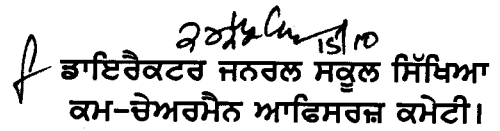 15/10
ਡਾਇਰੈਕਟਰ ਜਨਰਲ ਸਕੂਲ ਸਿੱਖਿਆ
ਕਮ-ਚੇਅਰਮੈਨ ਆਫਿਸਰਜ਼ ਕਮੇਟੀ।